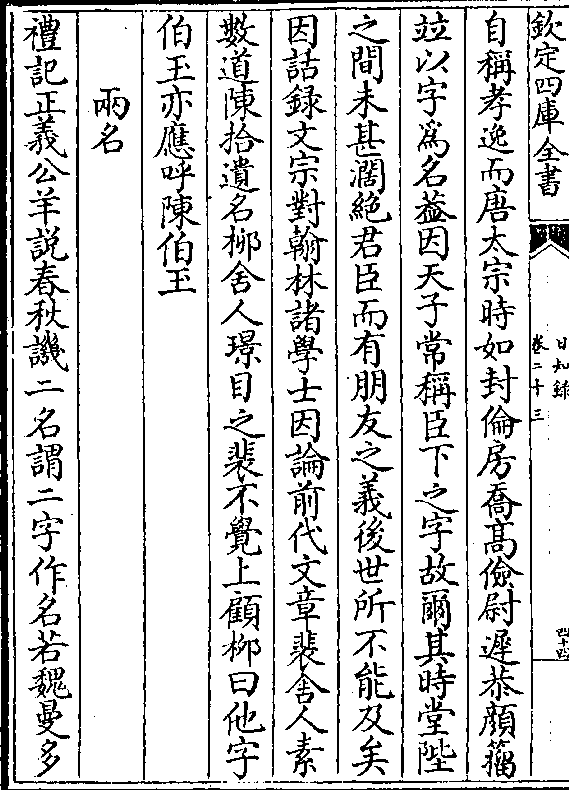 欽定四庫全書
日知錄
卷二十三
四十四
自稱孝逸而唐太宗時如封倫房喬髙儉尉遲恭顔籀
竝以字爲名葢因天子常稱臣下之字故爾其時堂陛
之間未甚濶絶君臣而有朋友之義後世所不能及矣
因話録文宗對翰林諸學士因論前代文章裴舍人素
數道陳拾遺名栁舍人璟目之裴不覺上顧栁曰他字
伯玉亦應呼陳伯玉
兩名
禮記正義公羊説春秋譏二名謂二字作名若魏曼多